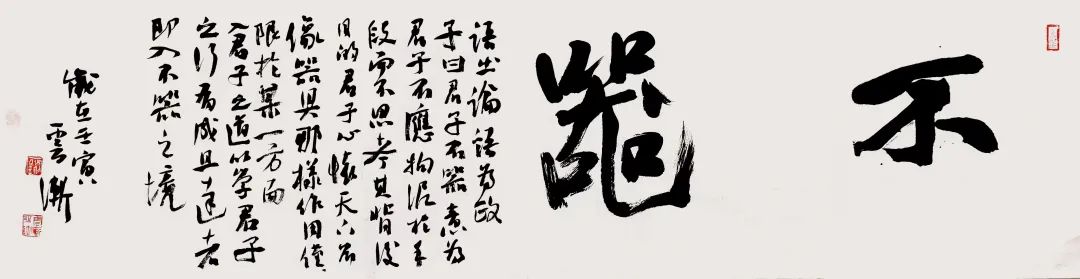 不器
語出論語為政
子曰君子不器意為
君子不應拘泥於手
段而不思考其背後
目的君子心懷天下不
像器具那樣作用僅
限於某一方面
入君子之道以學君子
之行為成且達者
即入不器之境
歲在壬寅
雲